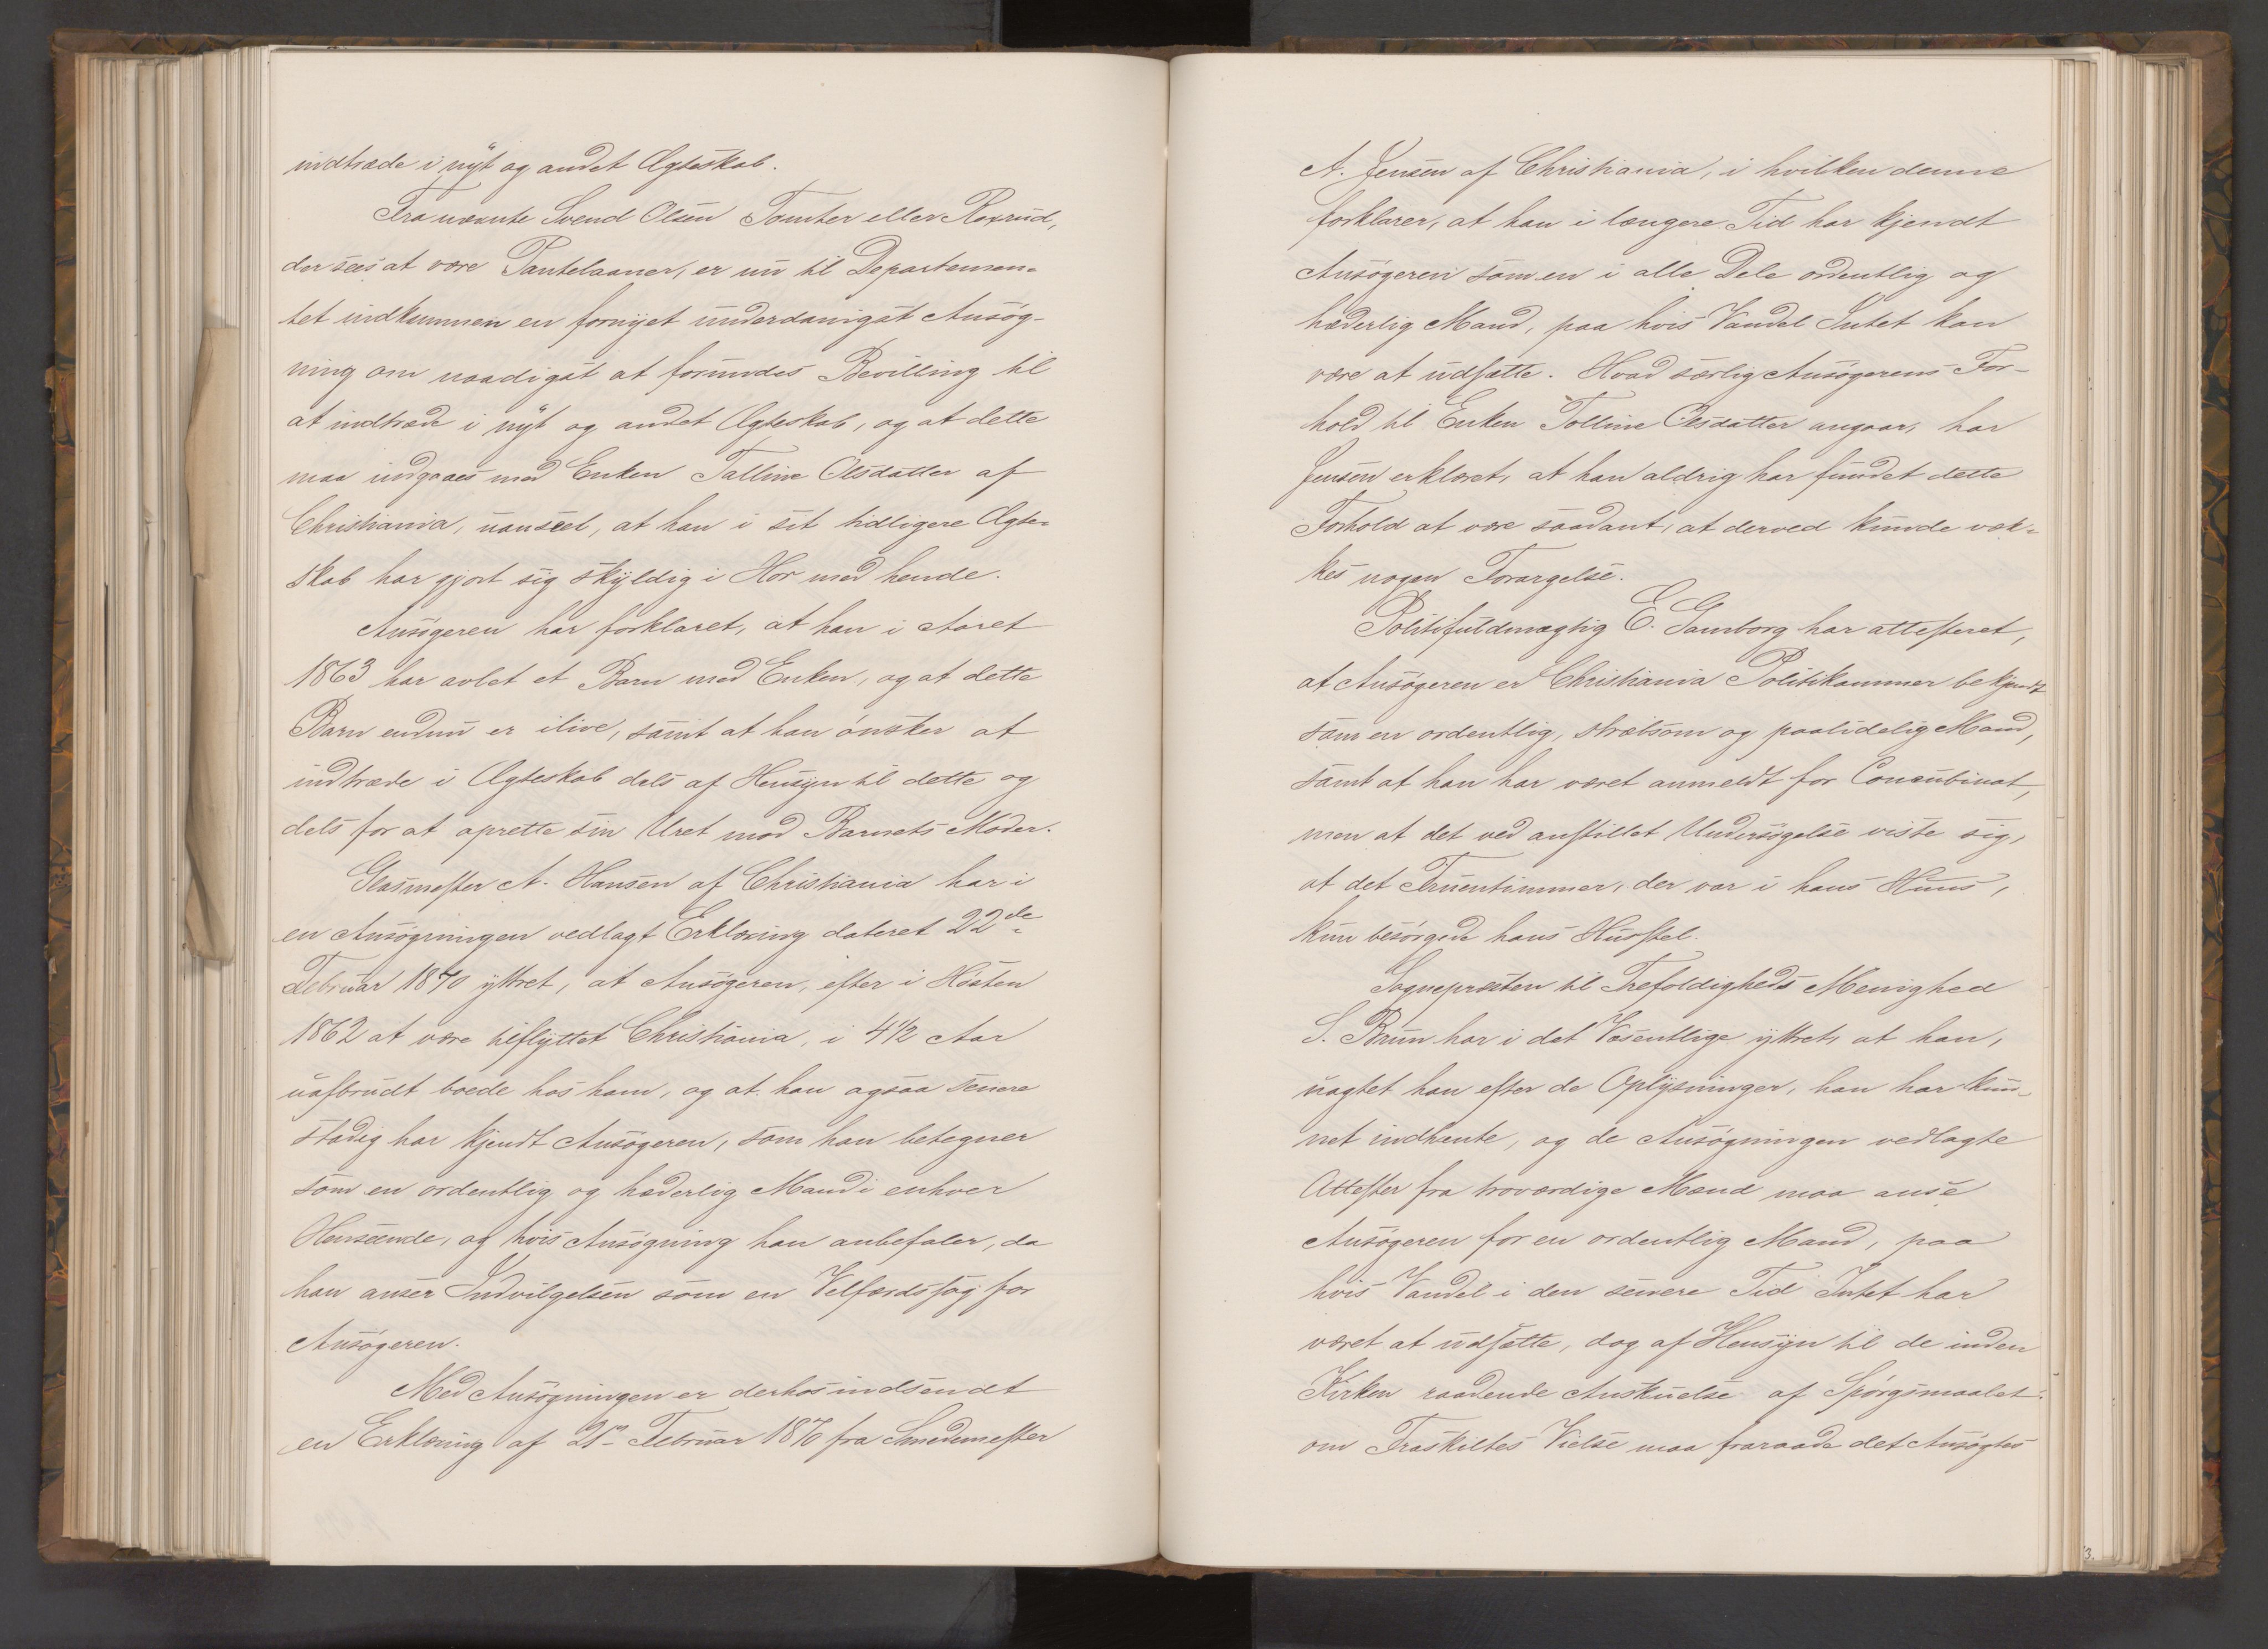 indtræde i nyt og andet Ægteskab.
Fra nævnte Svend Olsen Tomter eller Roxrud,
der sees at være Pantelaaner, er nu til Departemen-
tet indkommen en fornyet underdanigst Ansøg-
ning om naadigst at forundes Bevilling til
at indtræde i nyt og andet Ægteskab, og at dette
maa indgaaes med Enken Talline Olsdatter af
Christiania, uanseet, at han i sit tidligere Ægte-
skab har gjort sig skyldig i Hor med hende.
Ansøgeren har forklaret, at han i Aaret
1863 har avlet et Barn med Enken, og at dette
Barn endnu er ilive, samt at han ønsker at
indtræde i Ægteskab dels af Hensyn til dette og
dels for at oprette sin Uret mod Barnets Moder.
Glasmester A. Hansen af Christiania har i
en Ansøgningen vedlagt Erklæring dateret 22de
Februar 1870 yttret, at Ansøgeren, efter i Høsten
1862 at være tilflyttet Christiania, i 4 1/2 Aar
uafbrudt boede hos ham, og at han ogsaa senere
stadig har kjendt Ansøgeren, som han betegner
som en ordentlig og hæderlig Mand i enhver
Henseende, og hvis Ansøgning han anbefaler, da
han anser Indvilgelsen som en Velfærdssag for
Ansøgeren.
Med Ansøgningen er derhos indsendt
en Erklæring af Februar 1870 fra Smedemester
A. Jensen af Christiania, i hvilken denne
forklarer, at han i længere Tid har kjendt
Ansøgeren som en i alle Dele ordentlig og
hæderlig Mand, paa hvis Vandel Intet kan
være at udsætte. Hvad særlig Ansøgerens For-
hold til Enken Tolline Olsdatter angaar, har
Jensen erklæret, at han aldrig har fundet dette
Forhold at være saadant, at derved kunde væk-
kes nogen Forargelse.
Politifuldmægtig E. Gamborg har attesteret,
at Ansøgeren er Christiania Politikammer bekjendt
som en ordentlig, stræbsom og paalidelig Mand,
samt at han har været anmeldt for Concubinat,
men at det ved anstillet Undersøgelse viste sig,
at det Fruentimmer, der var i hans Huus,
kun besørgede hans Husstel.
Sognepræsten til Trefoldigheds Menighed
S. Brun har i det Væsentlige yttret, at han,
uagtet han efter de Oplysninger, han har kun-
net indhente, og de Ansøgningen vedlagte
Attester fra troværdige Mænd maa anse
Ansøgeren for en ordentlig Mand, paa
hvis Vandel i den senere Tid Intet har
været at udsætte, dog af Hensyn til de inden
Kirken raadende Anskuelse af Spørgsmaalet
om Fraskiltes Vielse maa fraraade det Ansøgtes